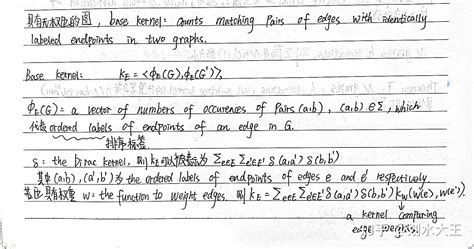 具有无权边的图, base kernel: counts matching pairs of edges with identically
labeled endpoints in two graphs.
Base kernel: k_E = <Φ_E(G), Φ_E(G')>,
Φ_E(G) = a vector of numbers of occurences of pairs (a,b), (a,b)∈Σ, which
代表 ordered labels of endpoints of an edge in G.
排序标签
δ = the Dirac kernel, 则 k_E 可以被表为 Σ_{e∈E} Σ_{e'∈E'} δ(a,a') δ(b,b')
其中 (a,b), (a',b') 为 the ordered labels of endpoints of edges e and e' respectively.
若边具有权重 w = the function to weight edges, 则 k_E = Σ_{e∈E} Σ_{e'∈E'} δ(a,a') δ(b,b') k_w(w(e), w(e')).
a kernel comparing
edge weights.